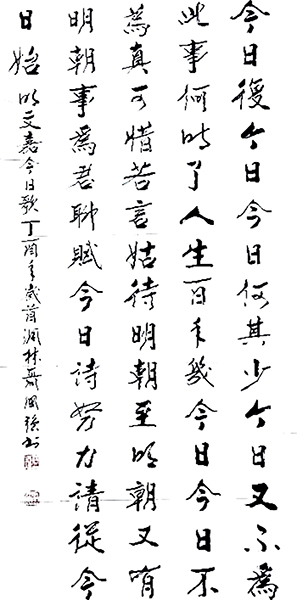 今日復今日今日何其少今日又不為
此事何時了人生百年幾今日今日不
為真可惜若言姑待明朝至明朝又有
明朝事為君聊賦今日詩努力請從今
日始 明文嘉今日歌丁酉年歲首